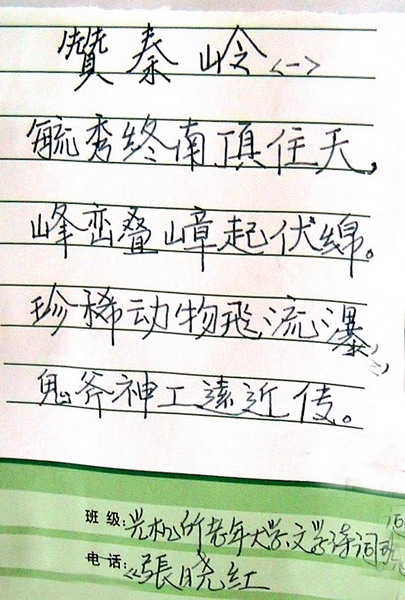 贊秦岭<一>
毓秀终南頂住天,
峰峦叠嶂起伏綿。
珍稀动物飛流瀑,
鬼斧神工遠近传。
班级:光机所老年大学文学诗词班
电话:张晓红